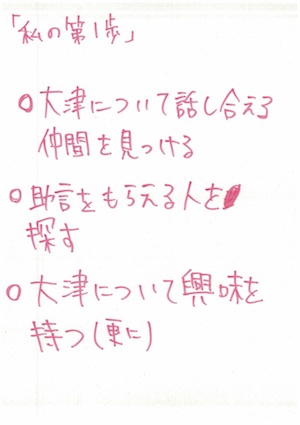 「私の第1歩」
○大津について話し合える
仲間を見つける
○助言をもらえる人を
探す
○大津について興味を
持つ(更に)